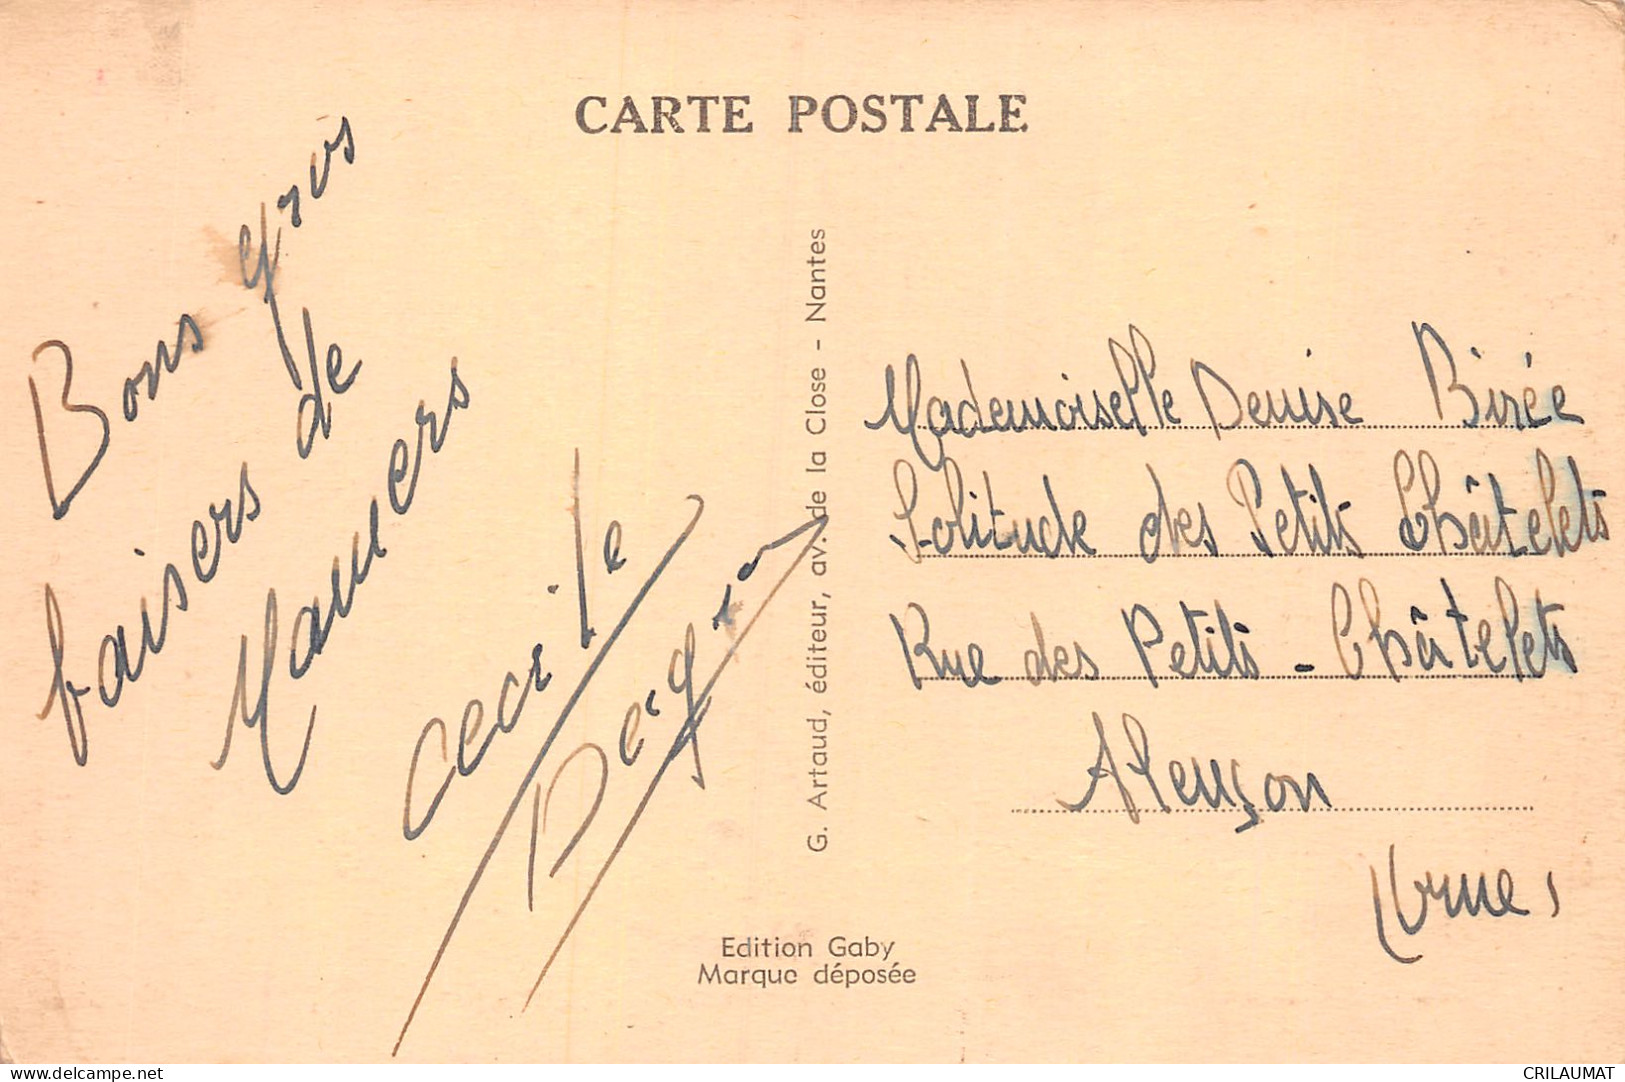 CARTE POSTALE
Bons gros
baisers de
Mamers
Cecile
G. Artaud, éditeur, av. de la Close - Nantes
Mademoiselle Denise Birée
Solitude des Petits Châtelets
Rue des Petits - Châtelets
Alençon
(Orne)
Edition Gaby
Marque déposée
www.delcampe.net
CRILAUMAT